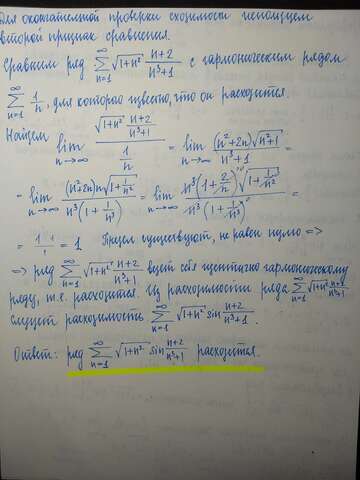 Для окончательной проверки сходимости используем
второй признак сравнения.
Сравним ряд ∑_{n=1}^{∞} √(1+n²) (n+2)/(n³+1) с гармоническим рядом
∑_{n=1}^{∞} 1/n, для которого известно, что он расходится.
Найдем lim_{n→∞} (√(1+n²) (n+2)/(n³+1))/(1/n) = lim_{n→∞} ((n²+2n)√(n²+1))/(n³+1) =
= lim_{n→∞} ((n²+2n)n√(1+1/n²))/(n³(1+1/n³)) = lim_{n→∞} (n³(1+2/n)√(1+1/n²))/(n³(1+1/n³)) =
= (1·1)/1 = 1 Предел существует, не равен нулю =>
=> ряд ∑_{n=1}^{∞} √(1+n²) (n+2)/(n³+1) ведет себя идентично гармоническому
ряду, т.е. расходится. Из расходимости ряда ∑_{n=1}^{∞} √(1+n²) (n+2)/(n³+1)
следует расходимость ∑_{n=1}^{∞} √(1+n²) sin (n+2)/(n³+1).
Ответ: ряд ∑_{n=1}^{∞} √(1+n²) sin (n+2)/(n³+1) расходится.